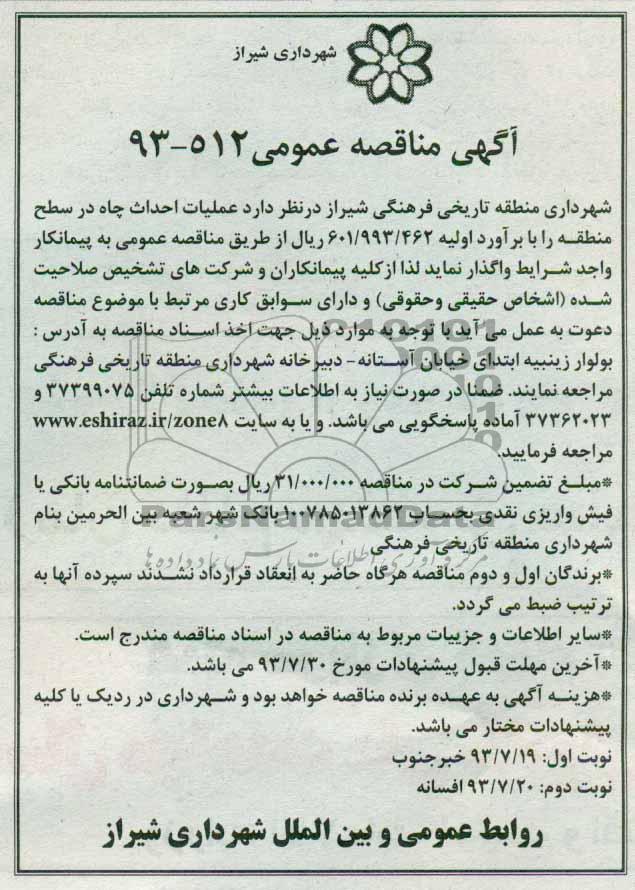 شهرداری شیراز
آگهی مناقصه عمومی ۵۱۲-۹۳
شهرداری منطقه تاریخی فرهنگی شیراز درنظر دارد عملیات احداث چاه در سطح
منطقه را با برآورد اولیه ۶۰۱/۹۹۳/۴۶۲ ریال از طریق مناقصه عمومی به پیمانکار
واجد شرایط واگذار نماید لذا ازکلیه پیمانکاران و شرکت های تشخیص صلاحیت
شده (اشخاص حقیقی وحقوقی) و دارای سوابق کاری مرتبط با موضوع مناقصه
دعوت به عمل می آید با توجه به موارد ذیل جهت اخذ اسناد مناقصه به آدرس :
بولوار زینبیه ابتدای خیابان آستانه- دبیرخانه شهرداری منطقه تاریخی فرهنگی
مراجعه نمایند. ضمنا در صورت نیاز به اطلاعات بیشتر شماره تلفن ۳۷۳۹۹۰۷۵ و
۳۷۳۶۲۰۲۳ آماده پاسخگویی می باشد. و یا به سایت www.eshiraz.ir/zone۸
مراجعه فرمایید.
*مبلغ تضمین شرکت در مناقصه ۳۱/۰۰۰/۰۰۰ ریال بصورت ضمانتنامه بانکی یا
فیش واریزی نقدی بحساب ۱۰۰۷۸۵۰۱۳۸۶۲ بانک شهر شعبه بین الحرمین بنام
شهرداری منطقه تاریخی فرهنگی
*برندگان اول و دوم مناقصه هرگاه حاضر به انعقاد قرارداد نشدند سپرده آنها به
ترتیب ضبط می گردد.
*سایر اطلاعات و جزییات مربوط به مناقصه در اسناد مناقصه مندرج است.
*آخرین مهلت قبول پیشنهادات مورخ ۹۳/۷/۳۰ می باشد.
*هزینه آگهی به عهده برنده مناقصه خواهد بود و شهرداری در ردیک یا کلیه
پیشنهادات مختار می باشد.
نوبت اول: ۹۳/۷/۱۹ خبرجنوب
نوبت دوم: ۹۳/۷/۲۰ افسانه
روابط عمومی و بین الملل شهرداری شیراز
ParsNamadData
مرکز فرآوری اطلاعات پارس نماد داده ها